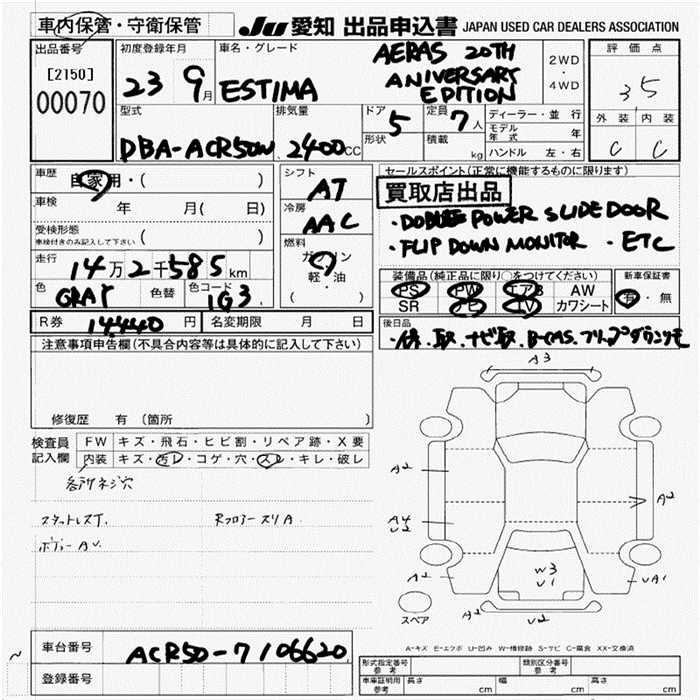 車内保管・守衛保管
JU 愛知 出品申込書 JAPAN USED CAR DEALERS ASSOCIATION
出品番号
[2150]
00070
初度登録年月
23 9月
車名・グレード
ESTIMA
AERAS 20TH
ANIVERSARY
EDITION
2WD
・
4WD
評価点
3.5
外装 内装
C C
型式
DBA-ACR50W
排気量
2400CC
ドア
5
形状
定員
7人
積載
kg
ディーラー・並行
モデル年式 年
ハンドル 左・右
車歴
自家用・( )
車検
年 月( 日)
受検形態
車検付きのみ記入して下さい ( )
走行
14万2千585km
色
GRAY
色替
色コード
1G3
R券 14,440円
名変期限 月 日
シフト
AT
冷房
AAC
燃料
ガソリン
軽・油
( )
セールスポイント(正常に機能するものに限ります)
買取店出品
・DOBULE POWER SLIDE DOOR
・FLIP DOWN MONITOR ・ETC
装備品(純正品に限り○をつけてください)
PS PW エアB AW 革
SR ナビ TV カワシート
新車保証書
有・無
後日品
・保.取.ナビ取.B-CAS.フリップダウンリモ
注意事項申告欄(不具合内容等は具体的に記入して下さい)
修復歴 有 〔箇所 〕
検査員
記入欄
FW キズ・飛石・ヒビ割・リペア跡・X要
内装 キズ・汚レ・コゲ・穴・スレ・キレ・破レ
各所ネジ穴
スタットレスT.
Rフロアースリ A
ボディーAU.
A3
A2
A4
U2
A2
A2
A2
W3
U1
UA1
U2
スペア
A-キズ E-エクボ U-凹み W-補修跡 S-サビ C-腐食 XX-交換済
車台番号
ACR50-7106620
登録番号
形式指定番号
参考
類別区分番号
参考
車庫証明用
参考
長さ cm
幅 cm
高さ cm